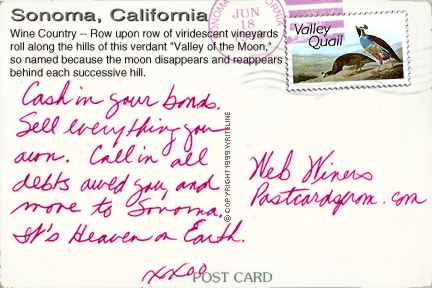 Sonoma, California
Wine Country -- Row upon row of viridescent vineyards
roll along the hills of this verdant "Valley of the Moon,"
so named because the moon disappears and reappears
behind each successive hill.
JUN
18
Valley
Quail
Cash in your bonds.
Sell everything you
own. Call in all
debts owed you, and
move to Sonoma.
It's Heaven on Earth.
xxoo
© COPYRIGHT 1999 WRITELINE
Web Winers
Postcardsfrom.com
POST CARD